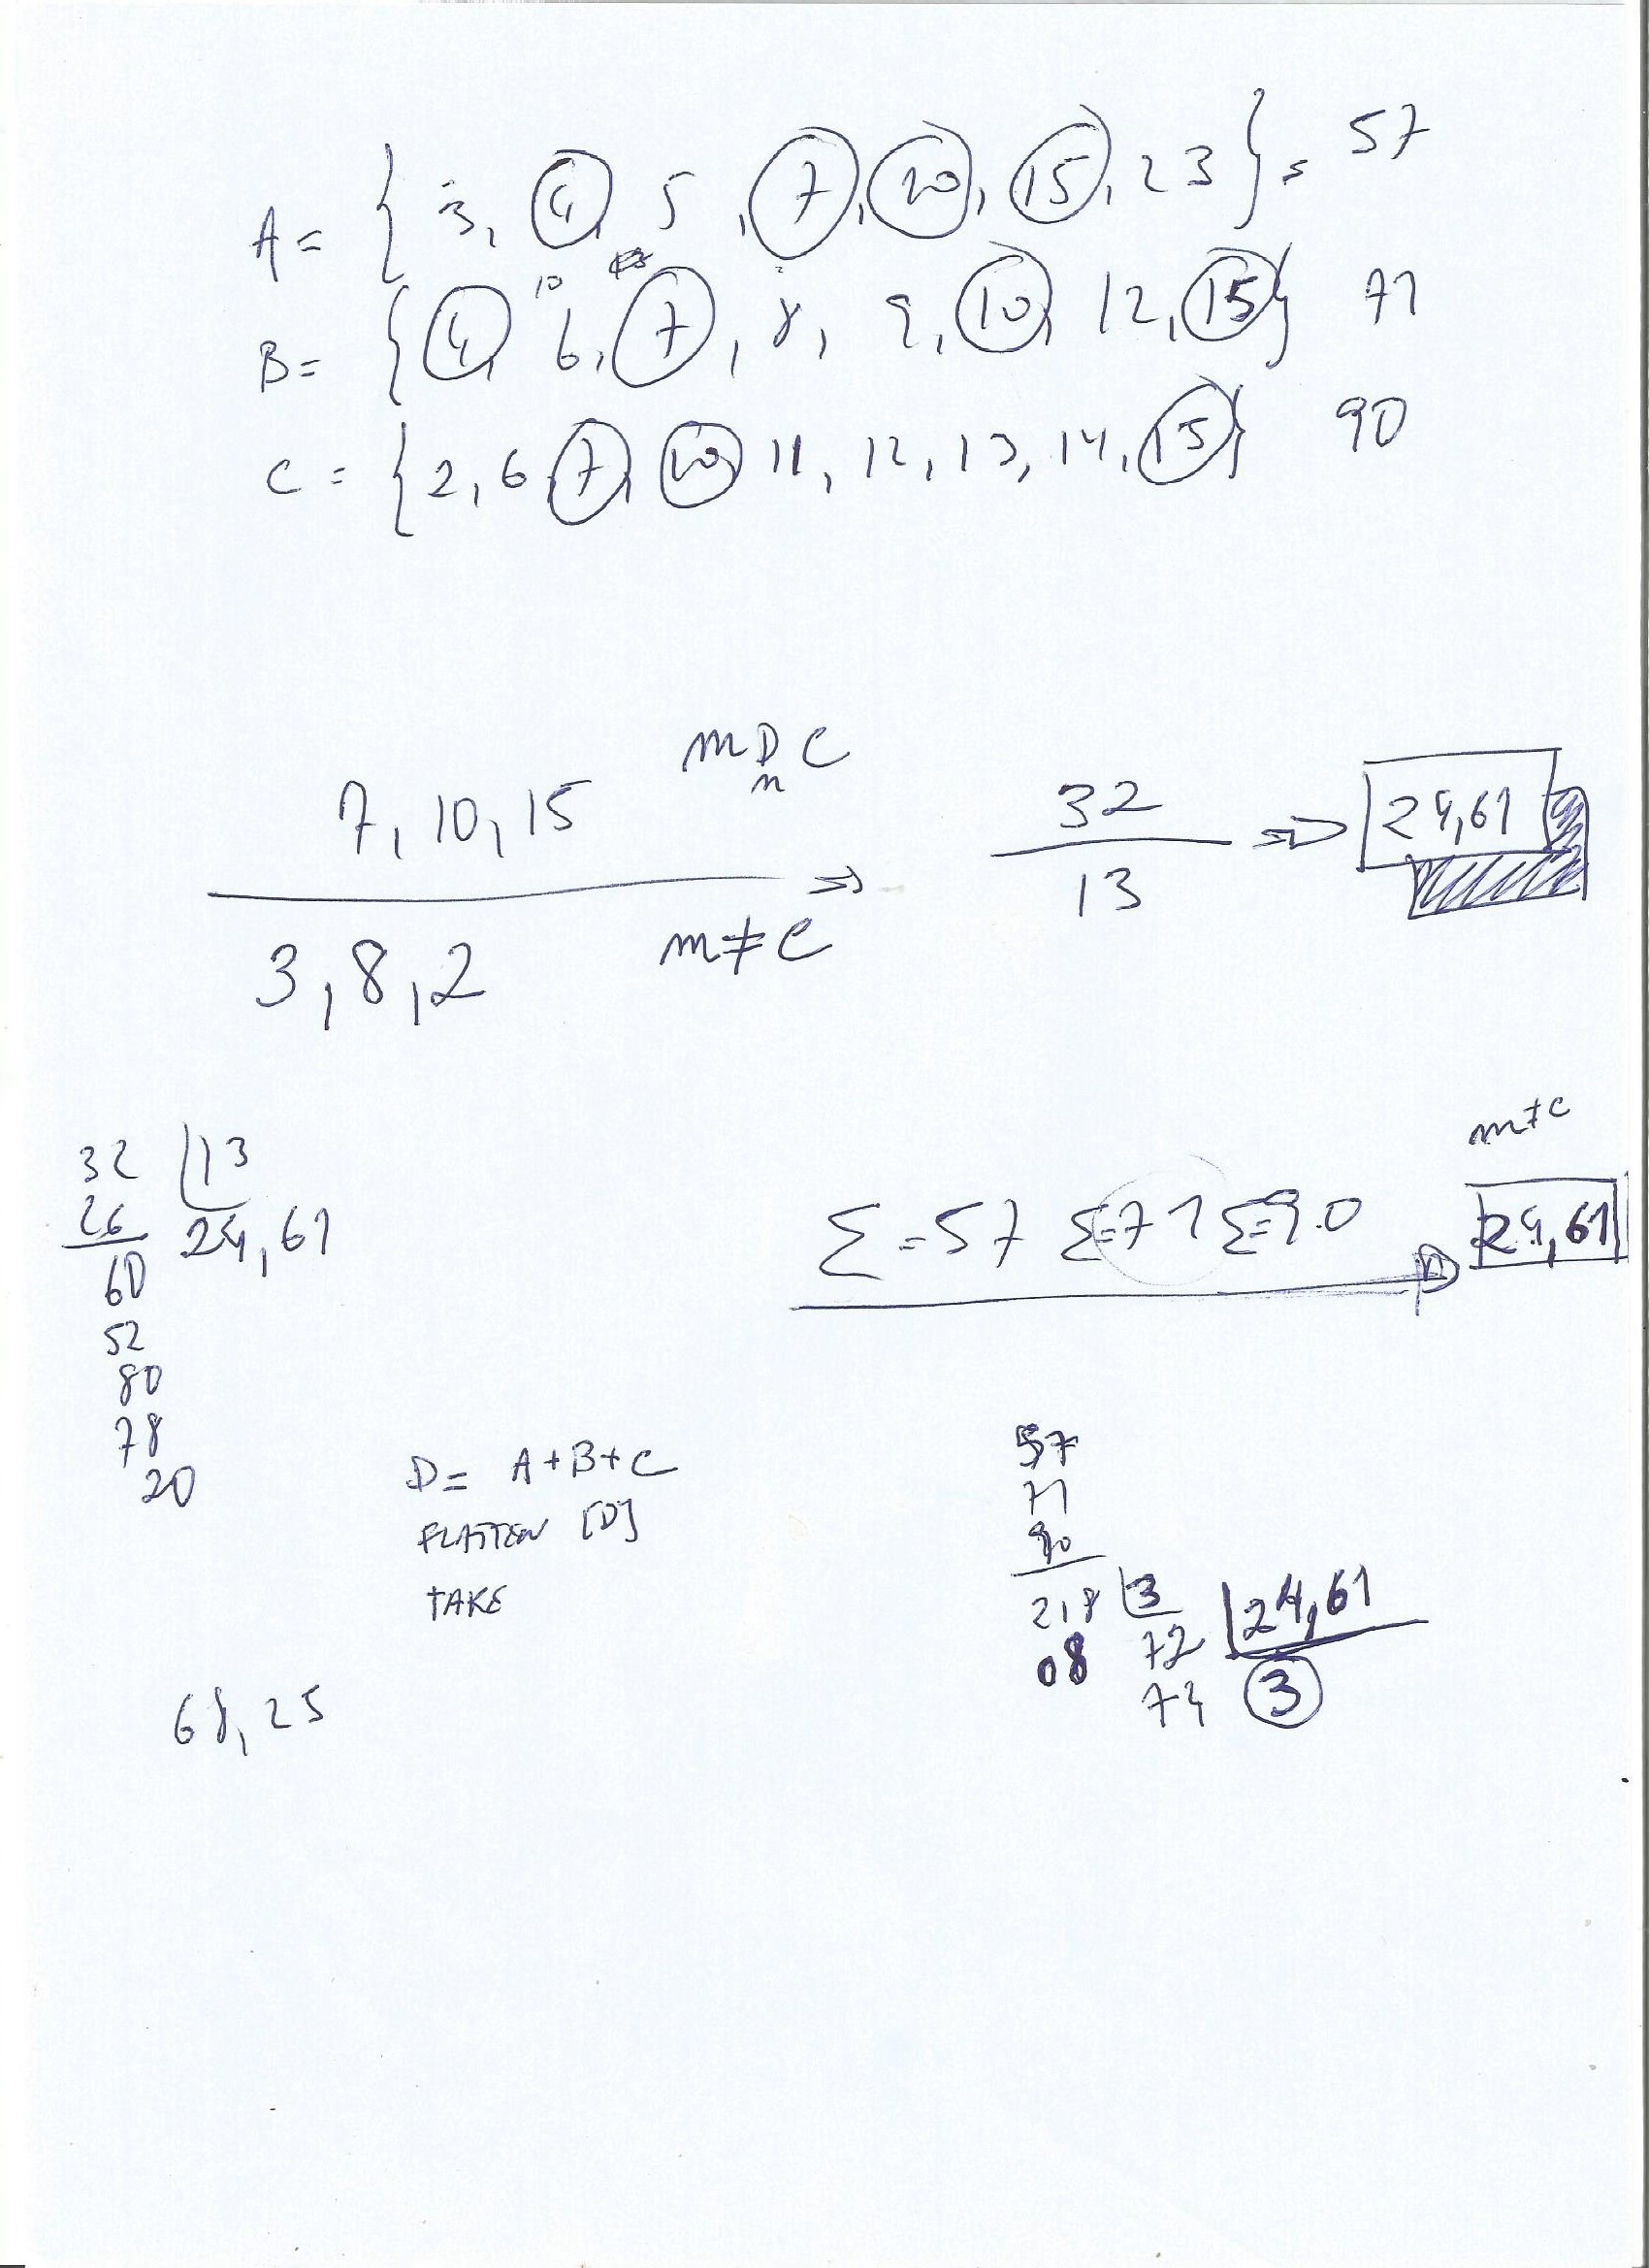 A = { 3, 4, 5, 7, 10, 15, 23 } = 57
10
B = { 4, 6, 7, 8, 9, 10, 12, 15 } 71
C = { 2, 6, 7, 10, 11, 12, 13, 14, 15 } 90
7, 10, 15
m D C
n
3, 8, 2
m ≠ C
⇒
32
13
⇒ 24,61
32 | 13
26 24,61
60
52
80
78
20
m ≠ C
Σ = 57 Σ = 71 Σ = 90 24,61
D = A + B + C
FLATTEN [D]
TAKE
57
71
90
218 | 3
08 72 | 24,61
74 3
68,25